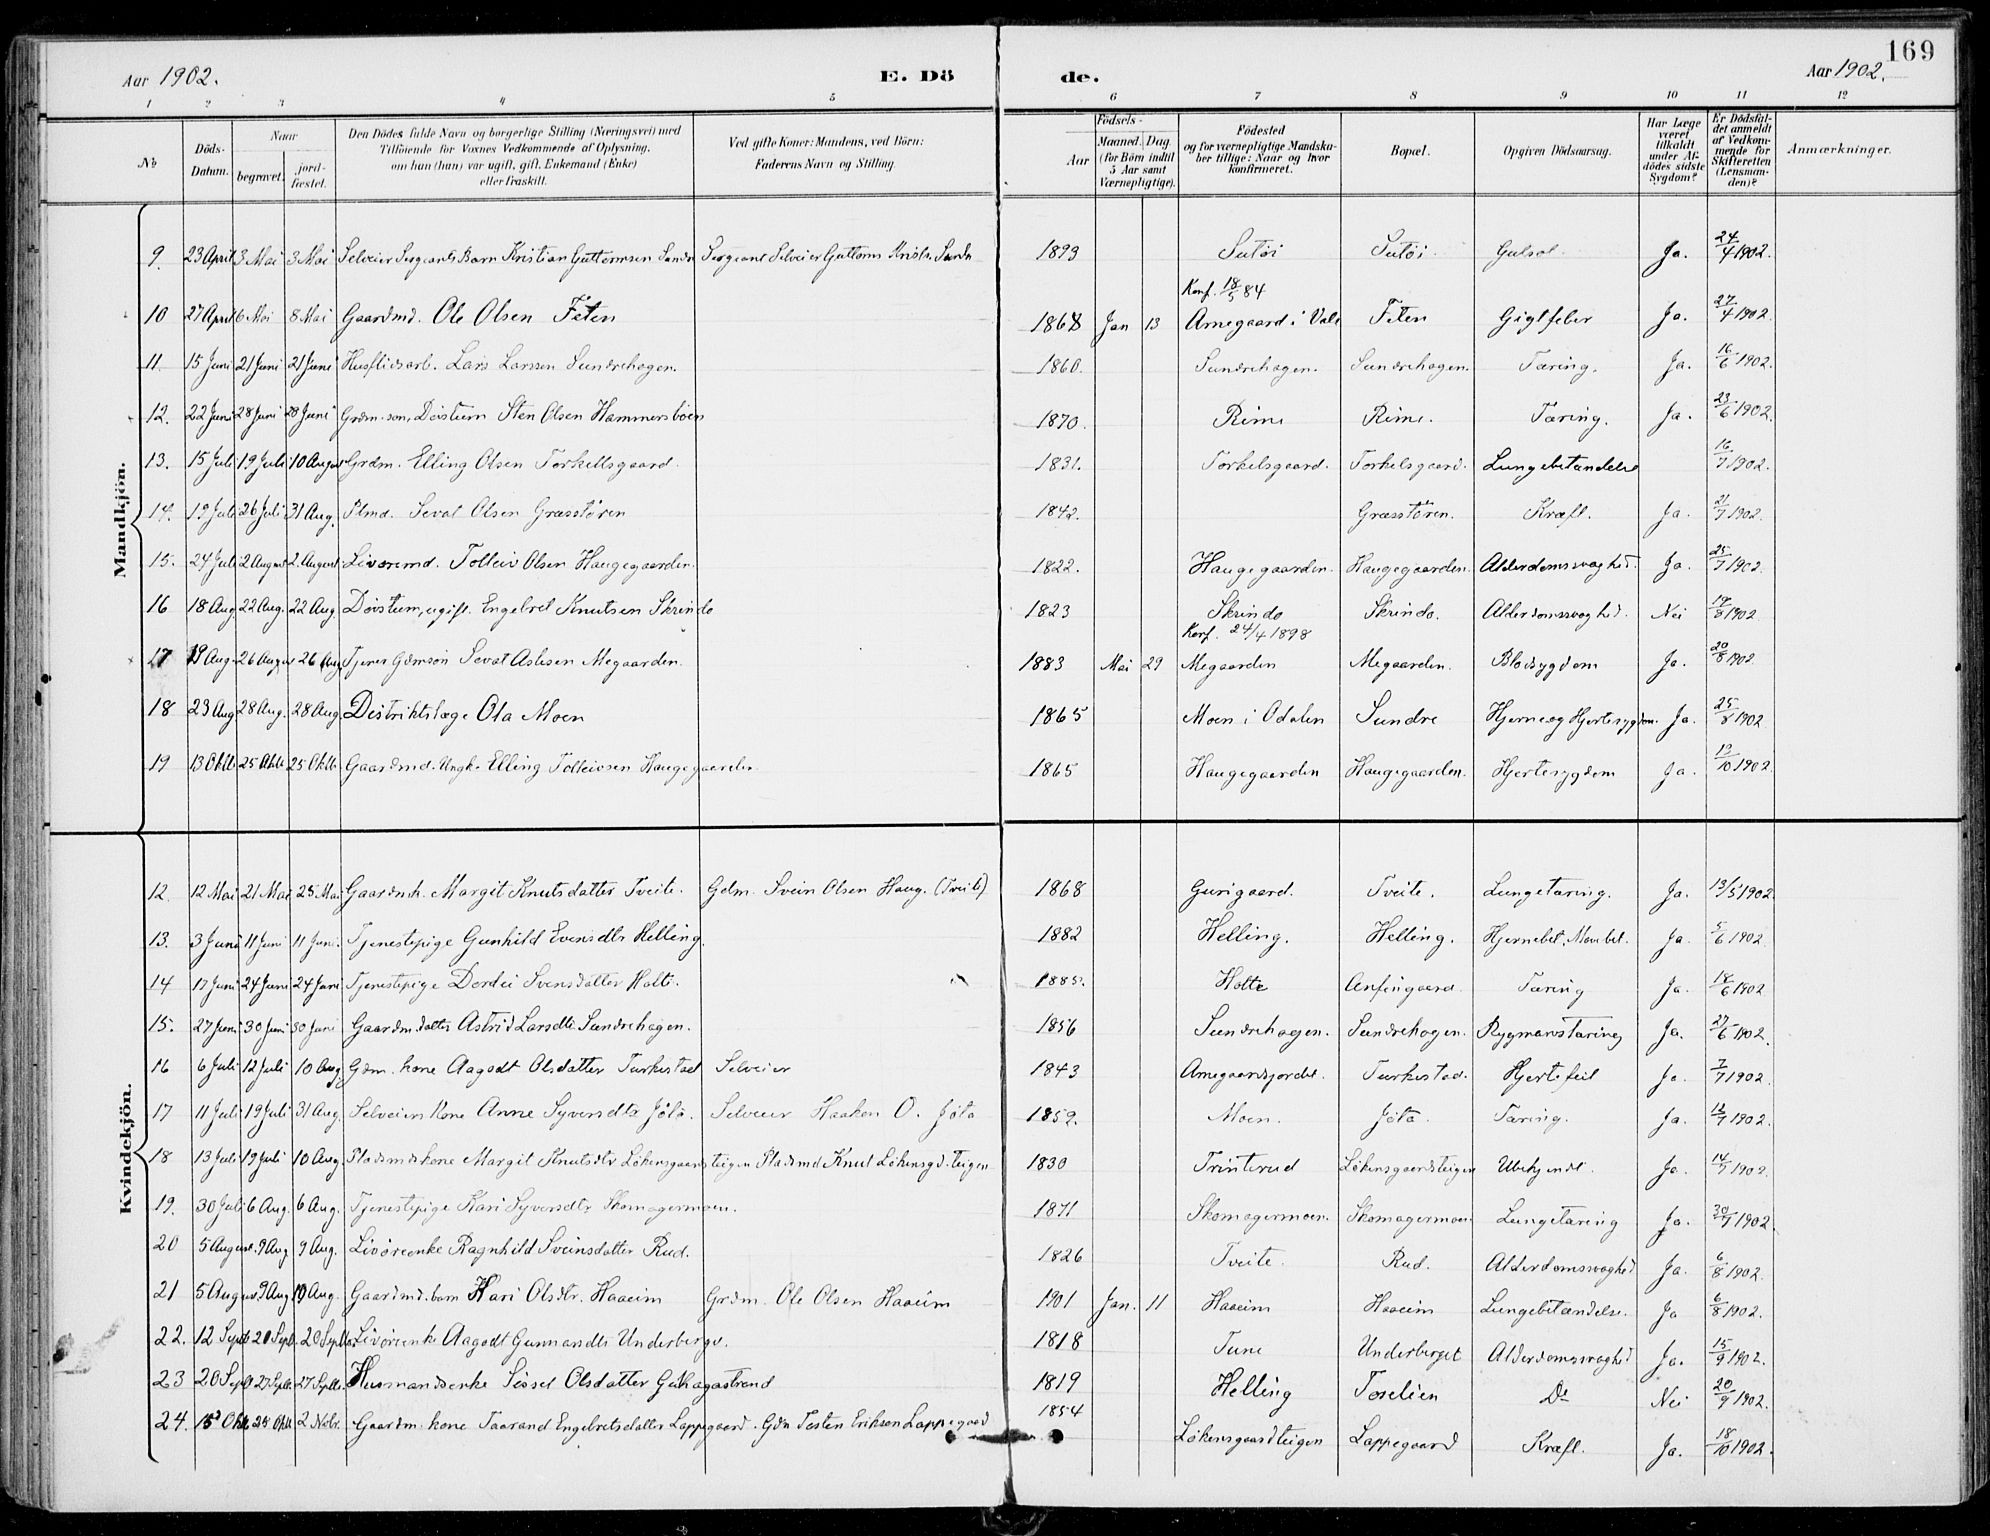 169
Aar 1902.
E. Döde.
Aar 1902.
1 2 3 4 5 6 7 8 9 10 11 12
No
Döds-Datum.
Naar
begravet.
jord-fæstet.
Den Dödes fulde Navn og borgerlige Stilling (Næringsvei) med
Tilföiende for Voxnes Vedkommende af Oplysning,
om hun (han) var ugift, gift, Enkemand (Enke)
eller fraskilt.
Ved gifte Koner: Mandens, ved Börn:
Faderens Navn og Stilling
Födsels-
Aar
Maaned. Dag.
(for Börn indtil
5 Aar samt
Værnepligtige).
Födested
og for værnepligtige Mandska-
ber tillige: Naar og hvor
konfirmeret.
Bopæl.
Opgiven Dödsaarsag.
Har Læge
været
tilkaldt
under Af-
dödes sidste
Sygdom?
Er Dödsfal-
det anmeldt
af Vedkom-
mende for
Skifteretten
(Lensman-
den)?
Anmærkninger.
Mandkjön.
9. 23 April 3 Mai 3 Mai Selveier Sergeants Barn Kristian Guttormsen Sergeant Selveier Guttorm 1893 Gulsot Ja. 24/4 1902.
Konf. 18/5 84
10 27 April 6 Mai 8 Mai Gaardmd. Ole Olsen Feten 1868 Jan 13 Arnegaard i Feten Gigtfeber Ja. 27/4 1902.
11. 15 Juni 21 Juni 21 Juni Husflidsarb. Lars Larssen Sundrehagen. 1860. Sundrehagen. Sundrehagen. Tæring. Ja. 16/6 1902.
12. 22 Juni 28 Juni 28 Juni Grdm. son, Dövstum Sten Olsen Hammersböen 1870. Reime Reime. Tæring. Ja. 23/6 1902.
13. 15 Juli 19 Juli 10 August Grdm. Elling Olsen Torkellsgaard. 1831. Torkelsgaard. Torkelsgaard. Lungebetændelse 16/7 1902.
14. 19 Juli 26 Juli 31 Aug. Plmd. Sevat Olsen Græsstören 1842. Græsstören. Kræft. Ja. 21/7 1902.
15. 24 Juli 2 August 2. August Livöremd. Tolleiv Olsen Haugegaarden. 1822. Haugegaarden. Haugegaarden. Alderdomssvaghed. Ja. 25/7 1902.
16 18 Aug. 22 Aug. 22 Aug. Dövstum, ugift. Engebret Knutsen Skrindo 1823 Skrindo Skrindo. Alderdomssvaghed. Nei 19/8 1902
Konf. 24/4 1898
17 19 Aug. 26 August 26 Aug Tjener Gdmsön Sevat Aslesen Megaarden. 1883 Mai 29 Megaarden Megaarden. Blodsygdom Ja. 20/8 1902.
18 23 Aug 28 Aug. 28 Aug. Distriktslæge Ola Moen 1865 Moen i Odalen Sundre Hjerne og Hjertesygdom. Ja. 25/8 1902
19 13 Oktb. 25 Oktb 25 Oktb. Gaardmd. Ungk. Elling Tolleivsen Haugegaarden 1865 Haugegaarden Haugegaarden. Hjertesygdom Ja. 13/10 1902.
Kvindekjön.
12. 12 Mai 21 Mai 25 Mai Gaardmk. Margit Knutsdatter Tveite. Gdm. Svein Olsen Haug. (Tveite) 1868 Gurigaard. Tveite. Lungetæring. Ja. 13/5 1902
13. 3 Juni 11 Juni 11 Juni. Tjenestepige Gunhild Evensdtr Helling. 1882 Helling. Helling. Hjernebet. Mavebet. Ja. 5/6 1902.
14 17 Juni 24 Juni 24 Juni Tjenestepige Dordei Svensdatter Holte. 1885. Holte Anfingaard. Tæring Ja. 18/6 1902
15. 27 Juni 30 Juni 30 Juni Gaardm. datter Astrid Larsdtr Sundrehagen. 1856 Sundrehagen. Sundrehagen. Rygmarvstæring Ja. 27/6 1902.
16 6 Juli 12 Juli 10 Aug. Gdm. kone Aagodt Olsdatter Turkestad Selveier 1843 Arnegaardsjordet. Turkestad. Hjertefeil Ja. 7/7 1902.
17 11 Juli 19 Juli 31 Aug. Selveiers Kone Anne Syversdtr Jöta. Selveier Haakon O. Jöta 1852. Moen. Jöta. Tæring. Ja. 12/7 1902.
18 13 Juli 19 Juli 10 Aug. Pladsmdskone Margit Knutsdtr Lökensgaardsteigen Pladsmd Knut Lökensgd.teigen 1830 Trinterud Lökensgaardsteigen Ubekjendt. Ja. 14/7 1902.
19. 30 Juli 6 Aug. 6 Aug. Tjenestepige Kari Syversdtr Skomagermoen. 1871 Skomagermoen. Skomagermoen Lungetæring Ja. 30/7 1902.
20 5 August. 9 Aug 9 Aug. Livöreenke Ragnhild Sveinsdatter Rud. 1826 Tveite. Rud. Alderdomssvaghed Ja. 6/8 1902.
21 5 August. 9 Aug. 10 Aug. Gaardmd. barn Kari Olsdtr. Haaeim Grdm. Ole Olsen Haaeim 1901 Jan. 11 Haaeim Haaeim Lungebetændelse. Ja 6/8 1902.
22. 12 Septb 20 Sept. 20 Septb. Livöreenke Aagodt Gunnarsdtr Underberget. 1818 Tune Underberget Alderdomssvaghed Ja. 15/9 1902.
23 20 Sept 27 Septb. 27 Septb. Husmandsenke Sissel Olsdatter 1819 Helling Toselien Do Nei 20/9 1902.
24. 15 Oktb 25 Oktb 2 Novbr. Gaardm. kone Taarand Engebretsdatter Lappegaard. Gdm Testen Eriksen Lappegaard 1854 Lökensgaardteigen Lappegaard Kræft. Ja. 18/10 1902.